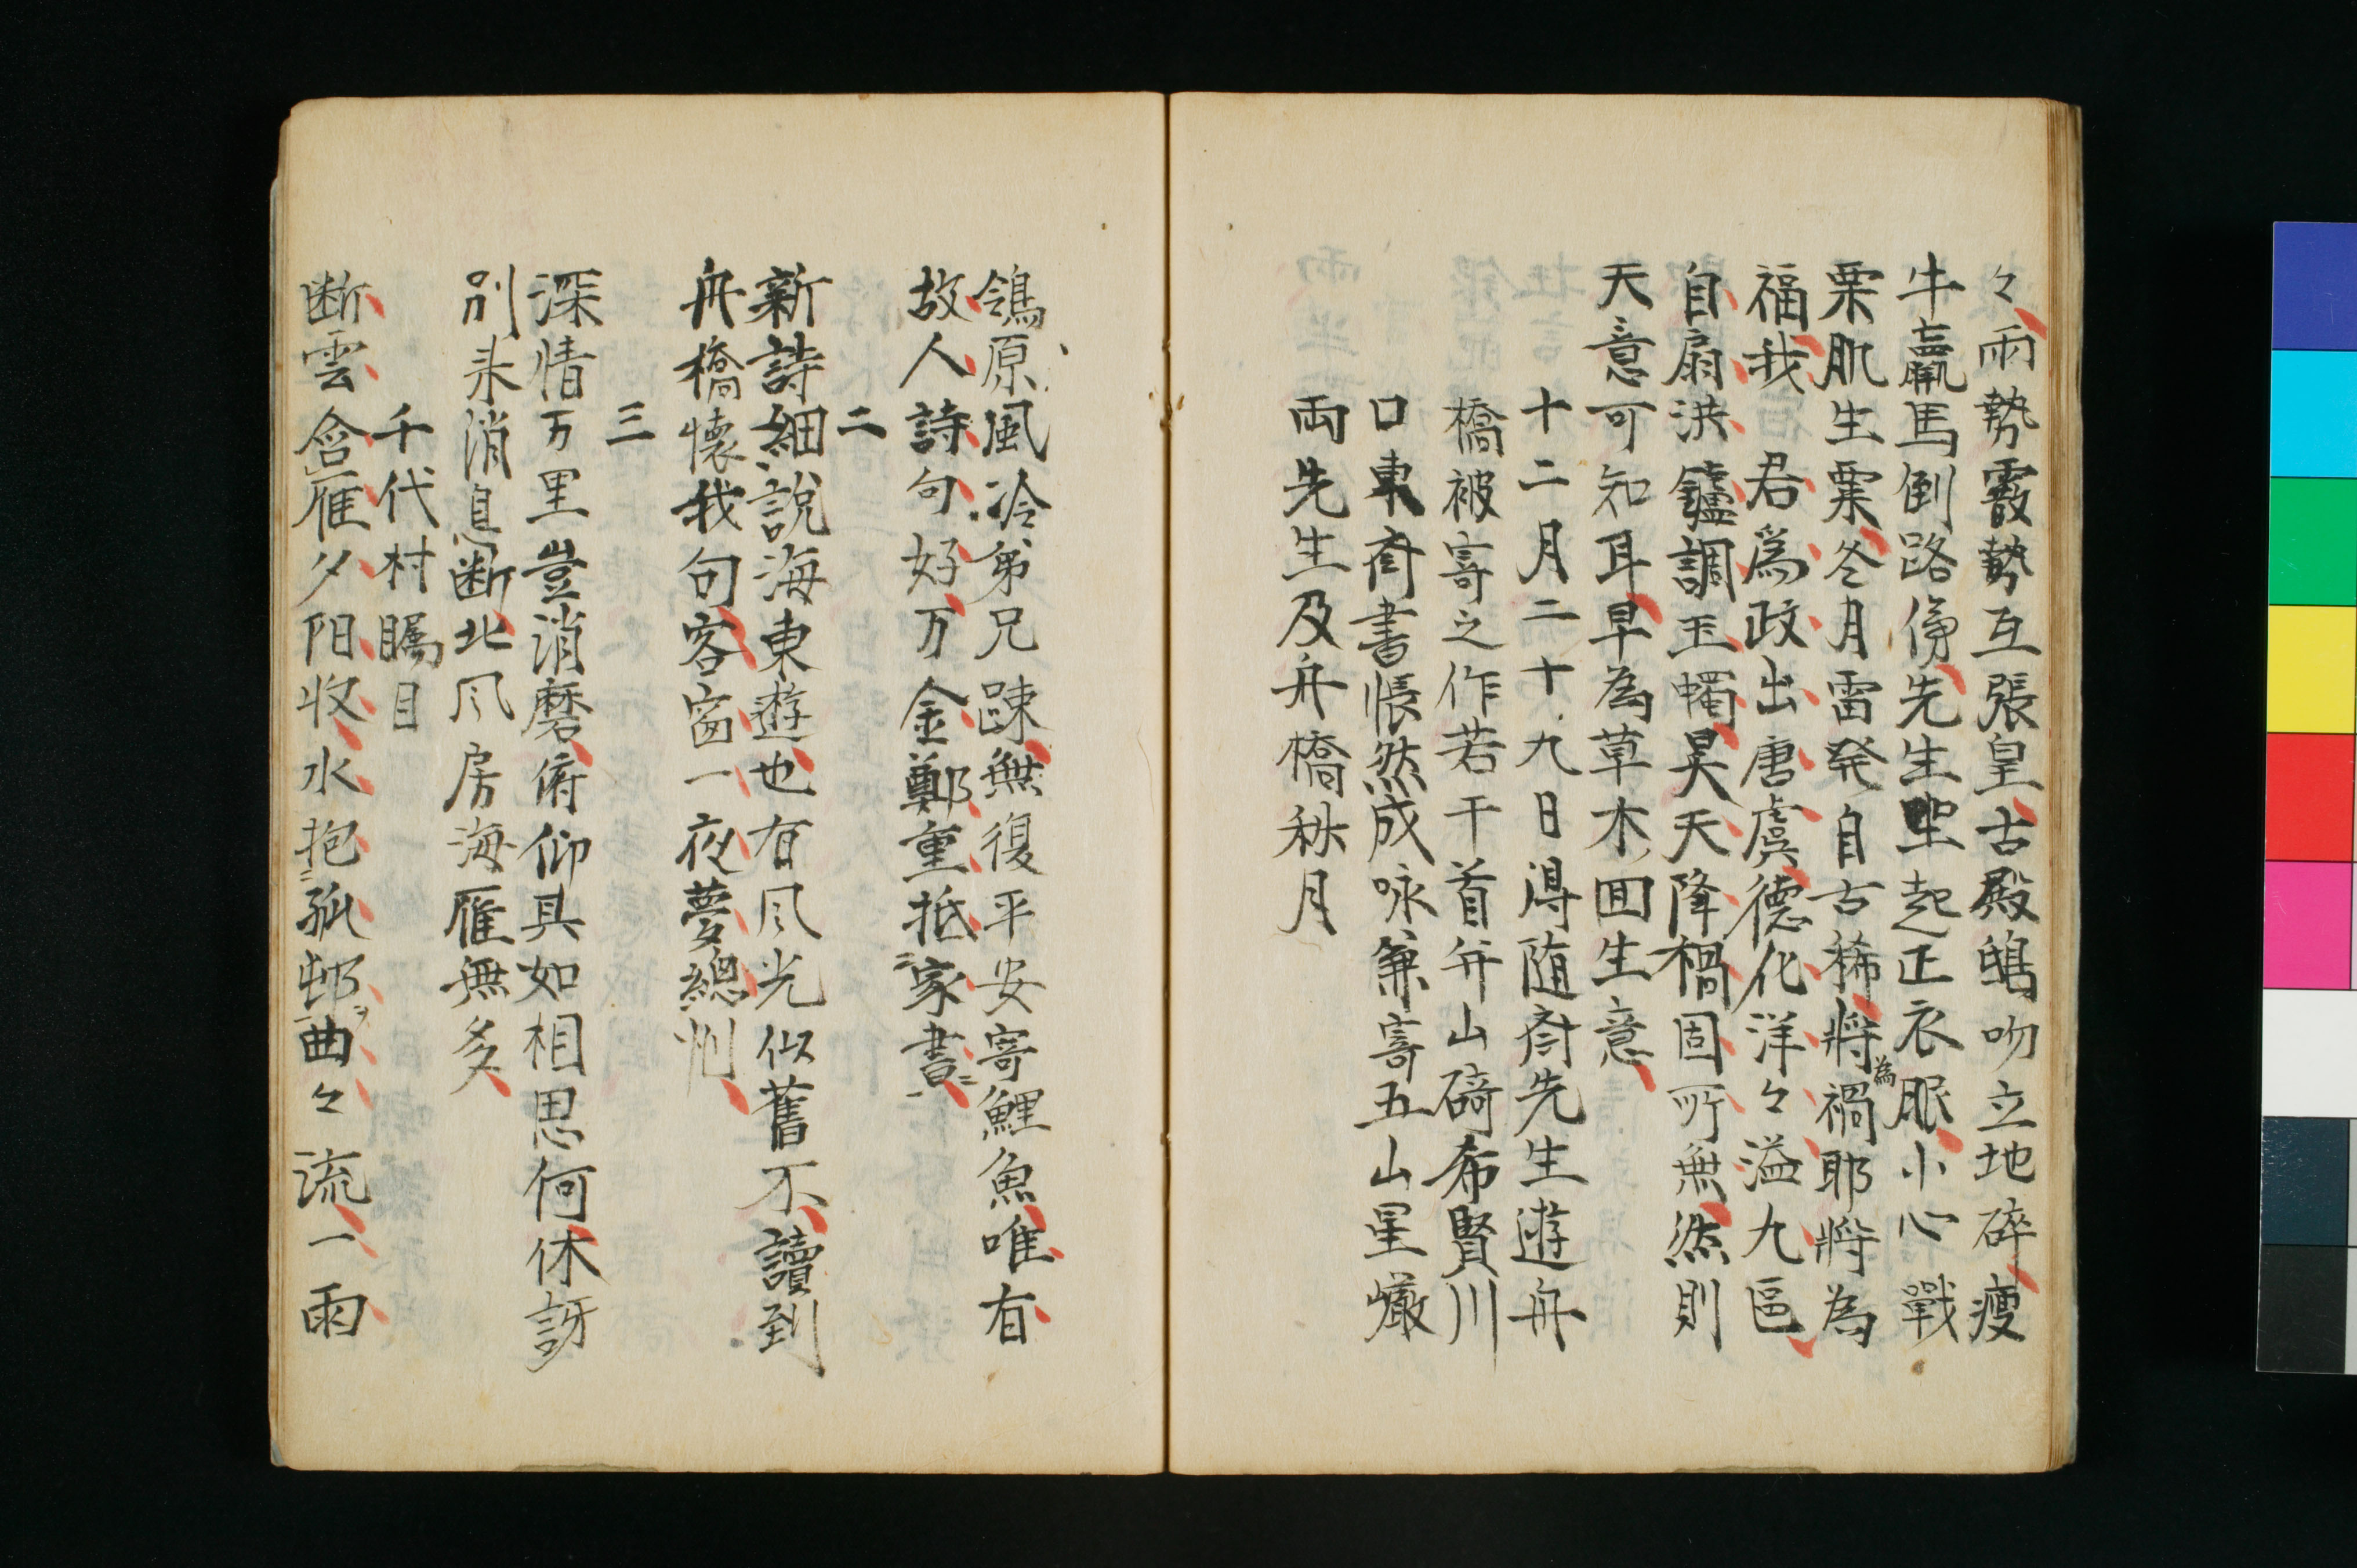 々雨勢霰勢互張皇古殿鴟吻立地碎瘦
牛羸馬倒路傍先生蹔起正衣服小心戰
栗肌生粟冬月雷発自古稀将為禍耶将為
福我君為政出唐虞德化洋々溢九區
自扇洪鑪調玉燭昊天降禍固所無然則
天意可知耳早為草木回生意
十二月二十九日得随斎先生遊舟
橋被寄之作若干首并山碕希賢川
口東斎書悵然成咏兼寄五山星巌
両先生及舟橋秌月
鴒原風冷弟兄踈無復平安寄鯉魚唯有
故人詩句好万金鄭重抵家書
二
新詩細説海東遊也有風光似舊不讀到
舟橋懐我句客窗一夜夢總州
三
深情万里豈消磨俯仰其如相思何休訝
別来消息断北風房海雁無多
千代村矚目
断雲含雁夕阳收水抱孤邨曲々流一雨